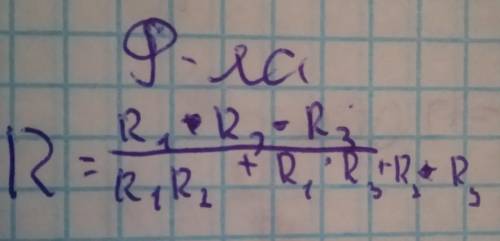 Ф-ла
R = R₁ · R₂ · R₃ / R₁R₂ + R₁ · R₃ + R₂ · R₃